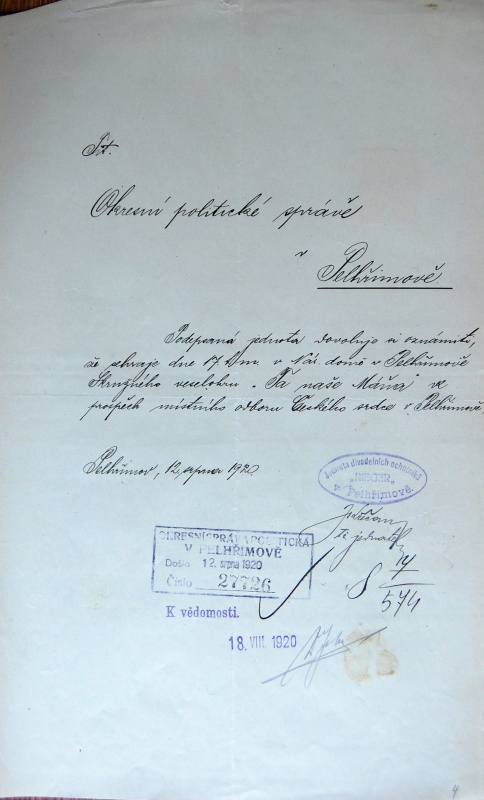 Okresní politické správě
v
Pelhřimově.
Podepsaná jednota dovoluje si oznámiti,
že sehraje dne 17. t.m. v Nár. domě v Pelhřimově
veselohru „Ta naše Máňa" ve
prospěch místního odboru Českého srdce v Pelhřimově
Pelhřimov, 12. srpna 1920.
Jednota divadelních ochotníků
„RIEGER"
v Pelhřimově.
t.č. jednatel
OKRESNÍ SPRÁVA POLITICKÁ
V PELHŘIMOVĚ
Došlo 12. srpna 1920
Číslo 27726
8 17/574
K vědomosti.
18. VIII. 1920
4